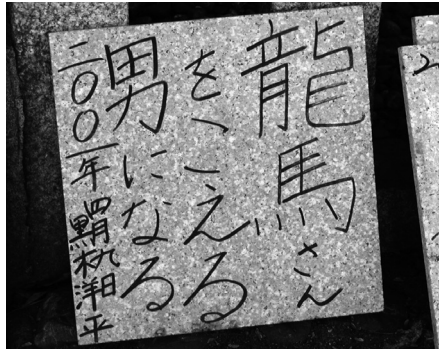 龍馬さん
をこえる
男になる
二〇〇一年 洋平